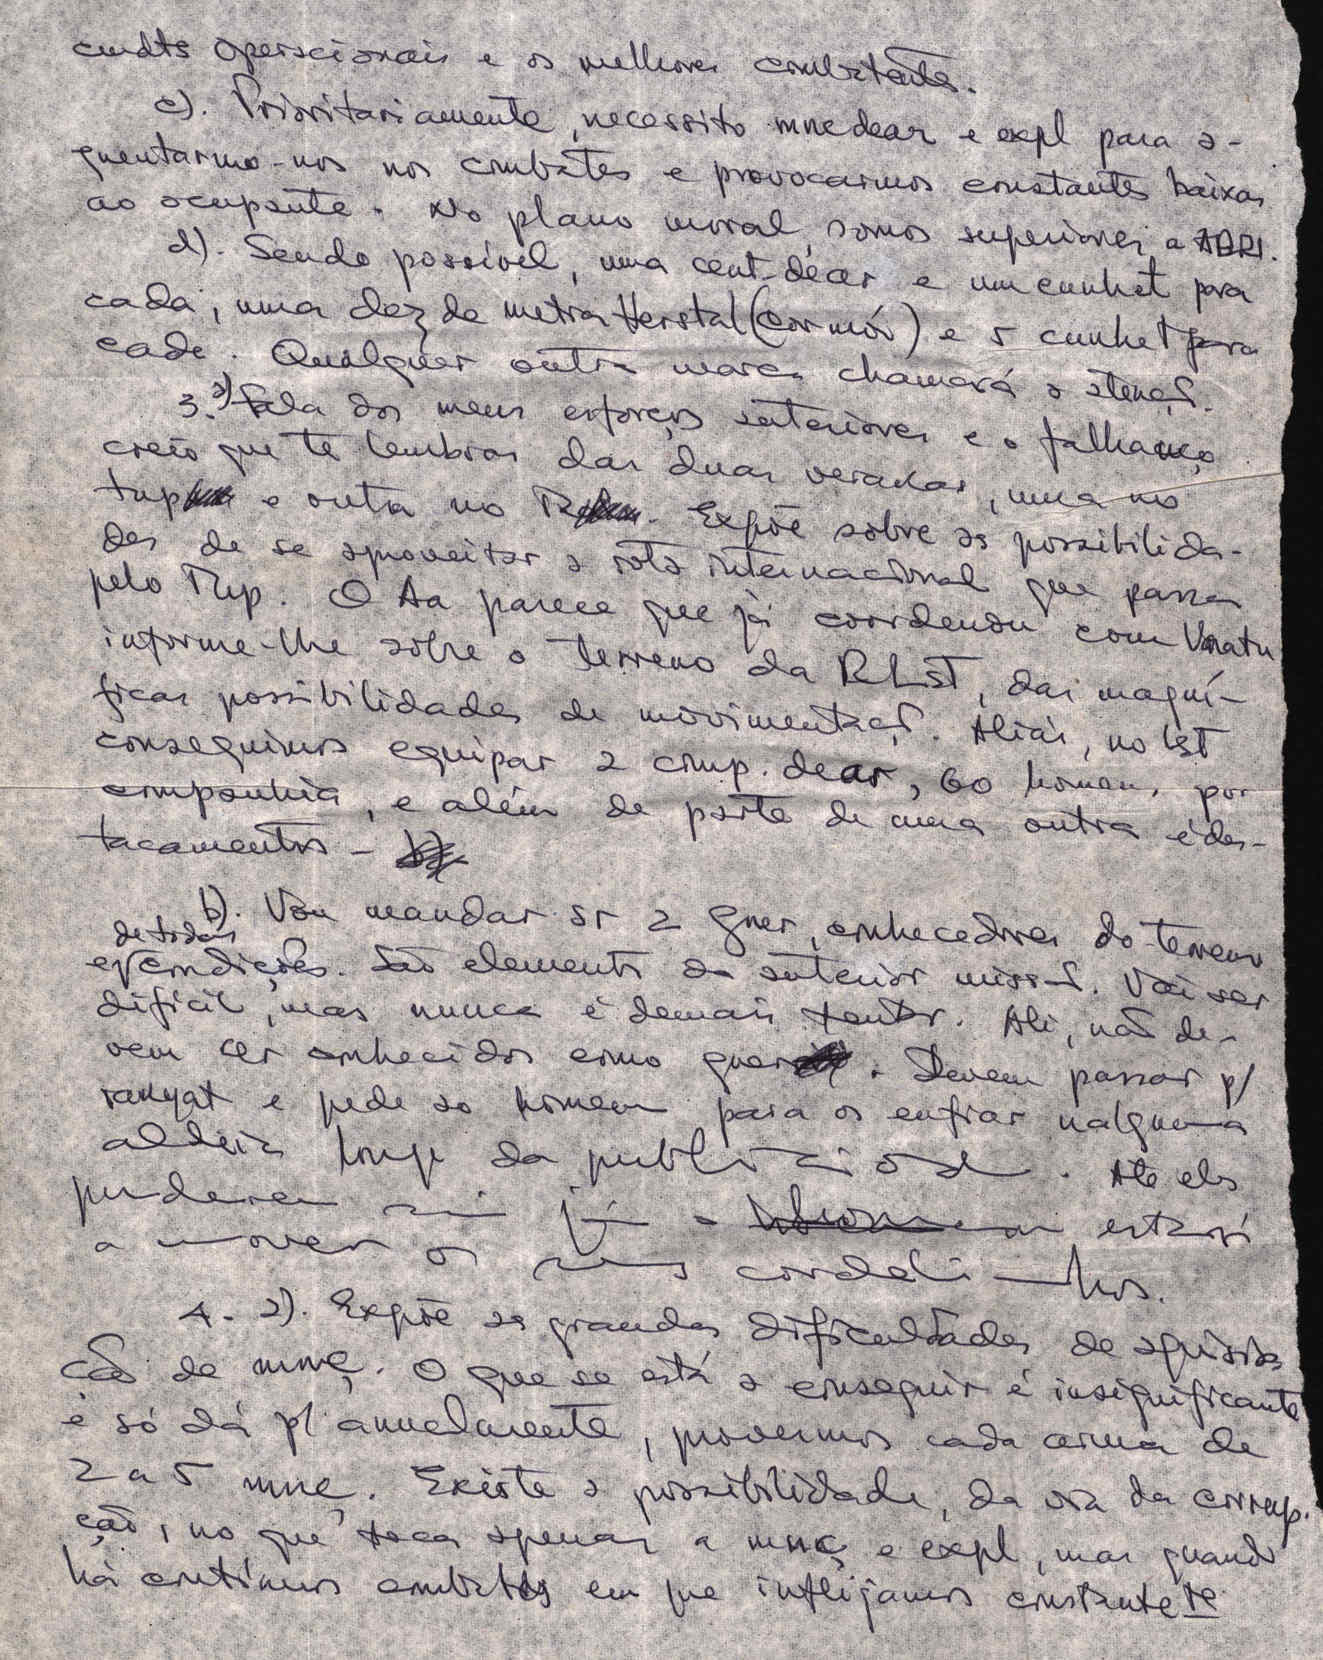 cmdts operacionais e os melhores combatentes.
c). Prioritariamente, necessito mnç de ar e expl para a-
guentarmo-nos nos combates e provocarmos constantes baixas
ao ocupante. No plano moral, somos superiores a ABRI.
d). Sendo possível, uma cent. de ar e um cunhet para
cada, uma dez de metra Herstal (cor mór) e 5 cunhet para
cada. Qualquer outra marca chamará a atenç.
3. a) Fala dos meus esforços anteriores e o falhanço
creio que te lembras das duas veradas, uma no
tup e outra no R. Expõe sobre as possibilida-
des de se aproveitar a rota internacional que passa
pelo Tup. O Aa parece que já coordenou com
informe-lhe sobre o terreno da RLST, das magní-
ficas possibilidades de movimentaç. Aliás, no lst
conseguimos equipar 2 comp. de ar, 60 homens por
companhia, e além de parte de uma outra e des-
tacamentos -
b). Vou mandar sr 2 guer, conhecedores do terreno
de todas
condições. São elementos da anterior missã. Vai ser
difícil, mas nunca é demais tentar. Ali, nã de-
vem ser conhecidos como guer. Devem passar p/
rakyat e pede ao homem para os enfiar nalguma
aldeia longe da publicidade. Até eles
puderem já a estará
a mover os seus cordelinhos.
4. a). Expõe as grandes dificuldades de aquisi-
çã de mnç. O que se está a conseguir é insignificante
e só dá p/ anualmente, provermos cada arma de
2 a 5 mnç. Existe a possibilidade, da via da corrup.
ção, no que toca apenas a mnç e expl, mas quando
há contínuos combates em que inflijamos constante te